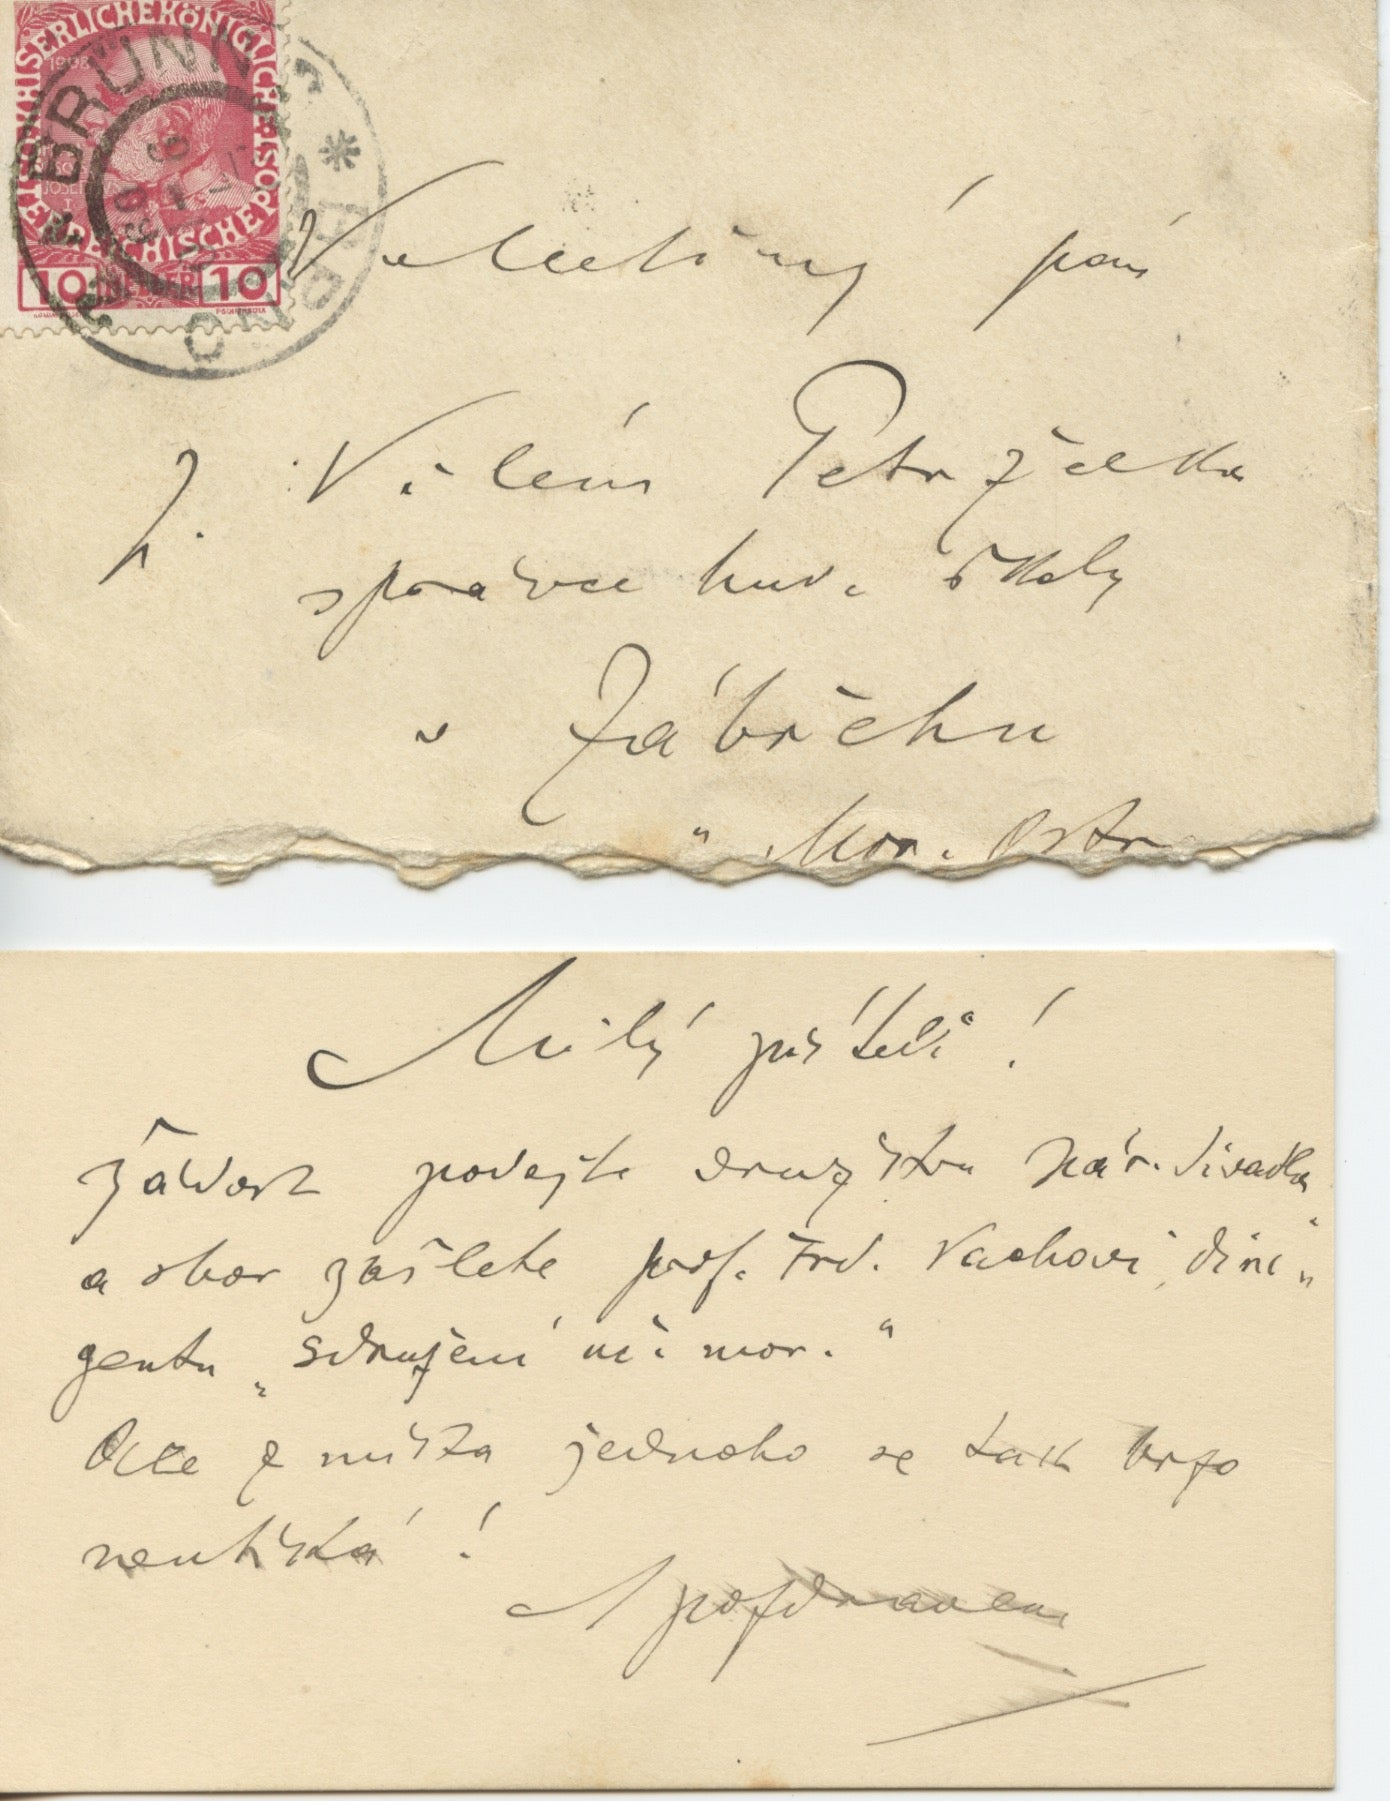 KAISERLICHE KÖNIGLICHE ÖSTERREICHISCHE POST
1908
10 HELLER 10
BRÜNN
BRNO
Velectěný pán
P. Vilém Petrželka
správce hud. školy
v Zábřehu
u Mor. Ostr
Milý příteli!
Žádost podejte družstvu Nár. divadla
a sbor zašlete prof. Frd. Vachovi, diri„
gentu „Sdružení uč. mor.“
Ale z místa jednoho se tak brzo
neutíká!
S pozdravem